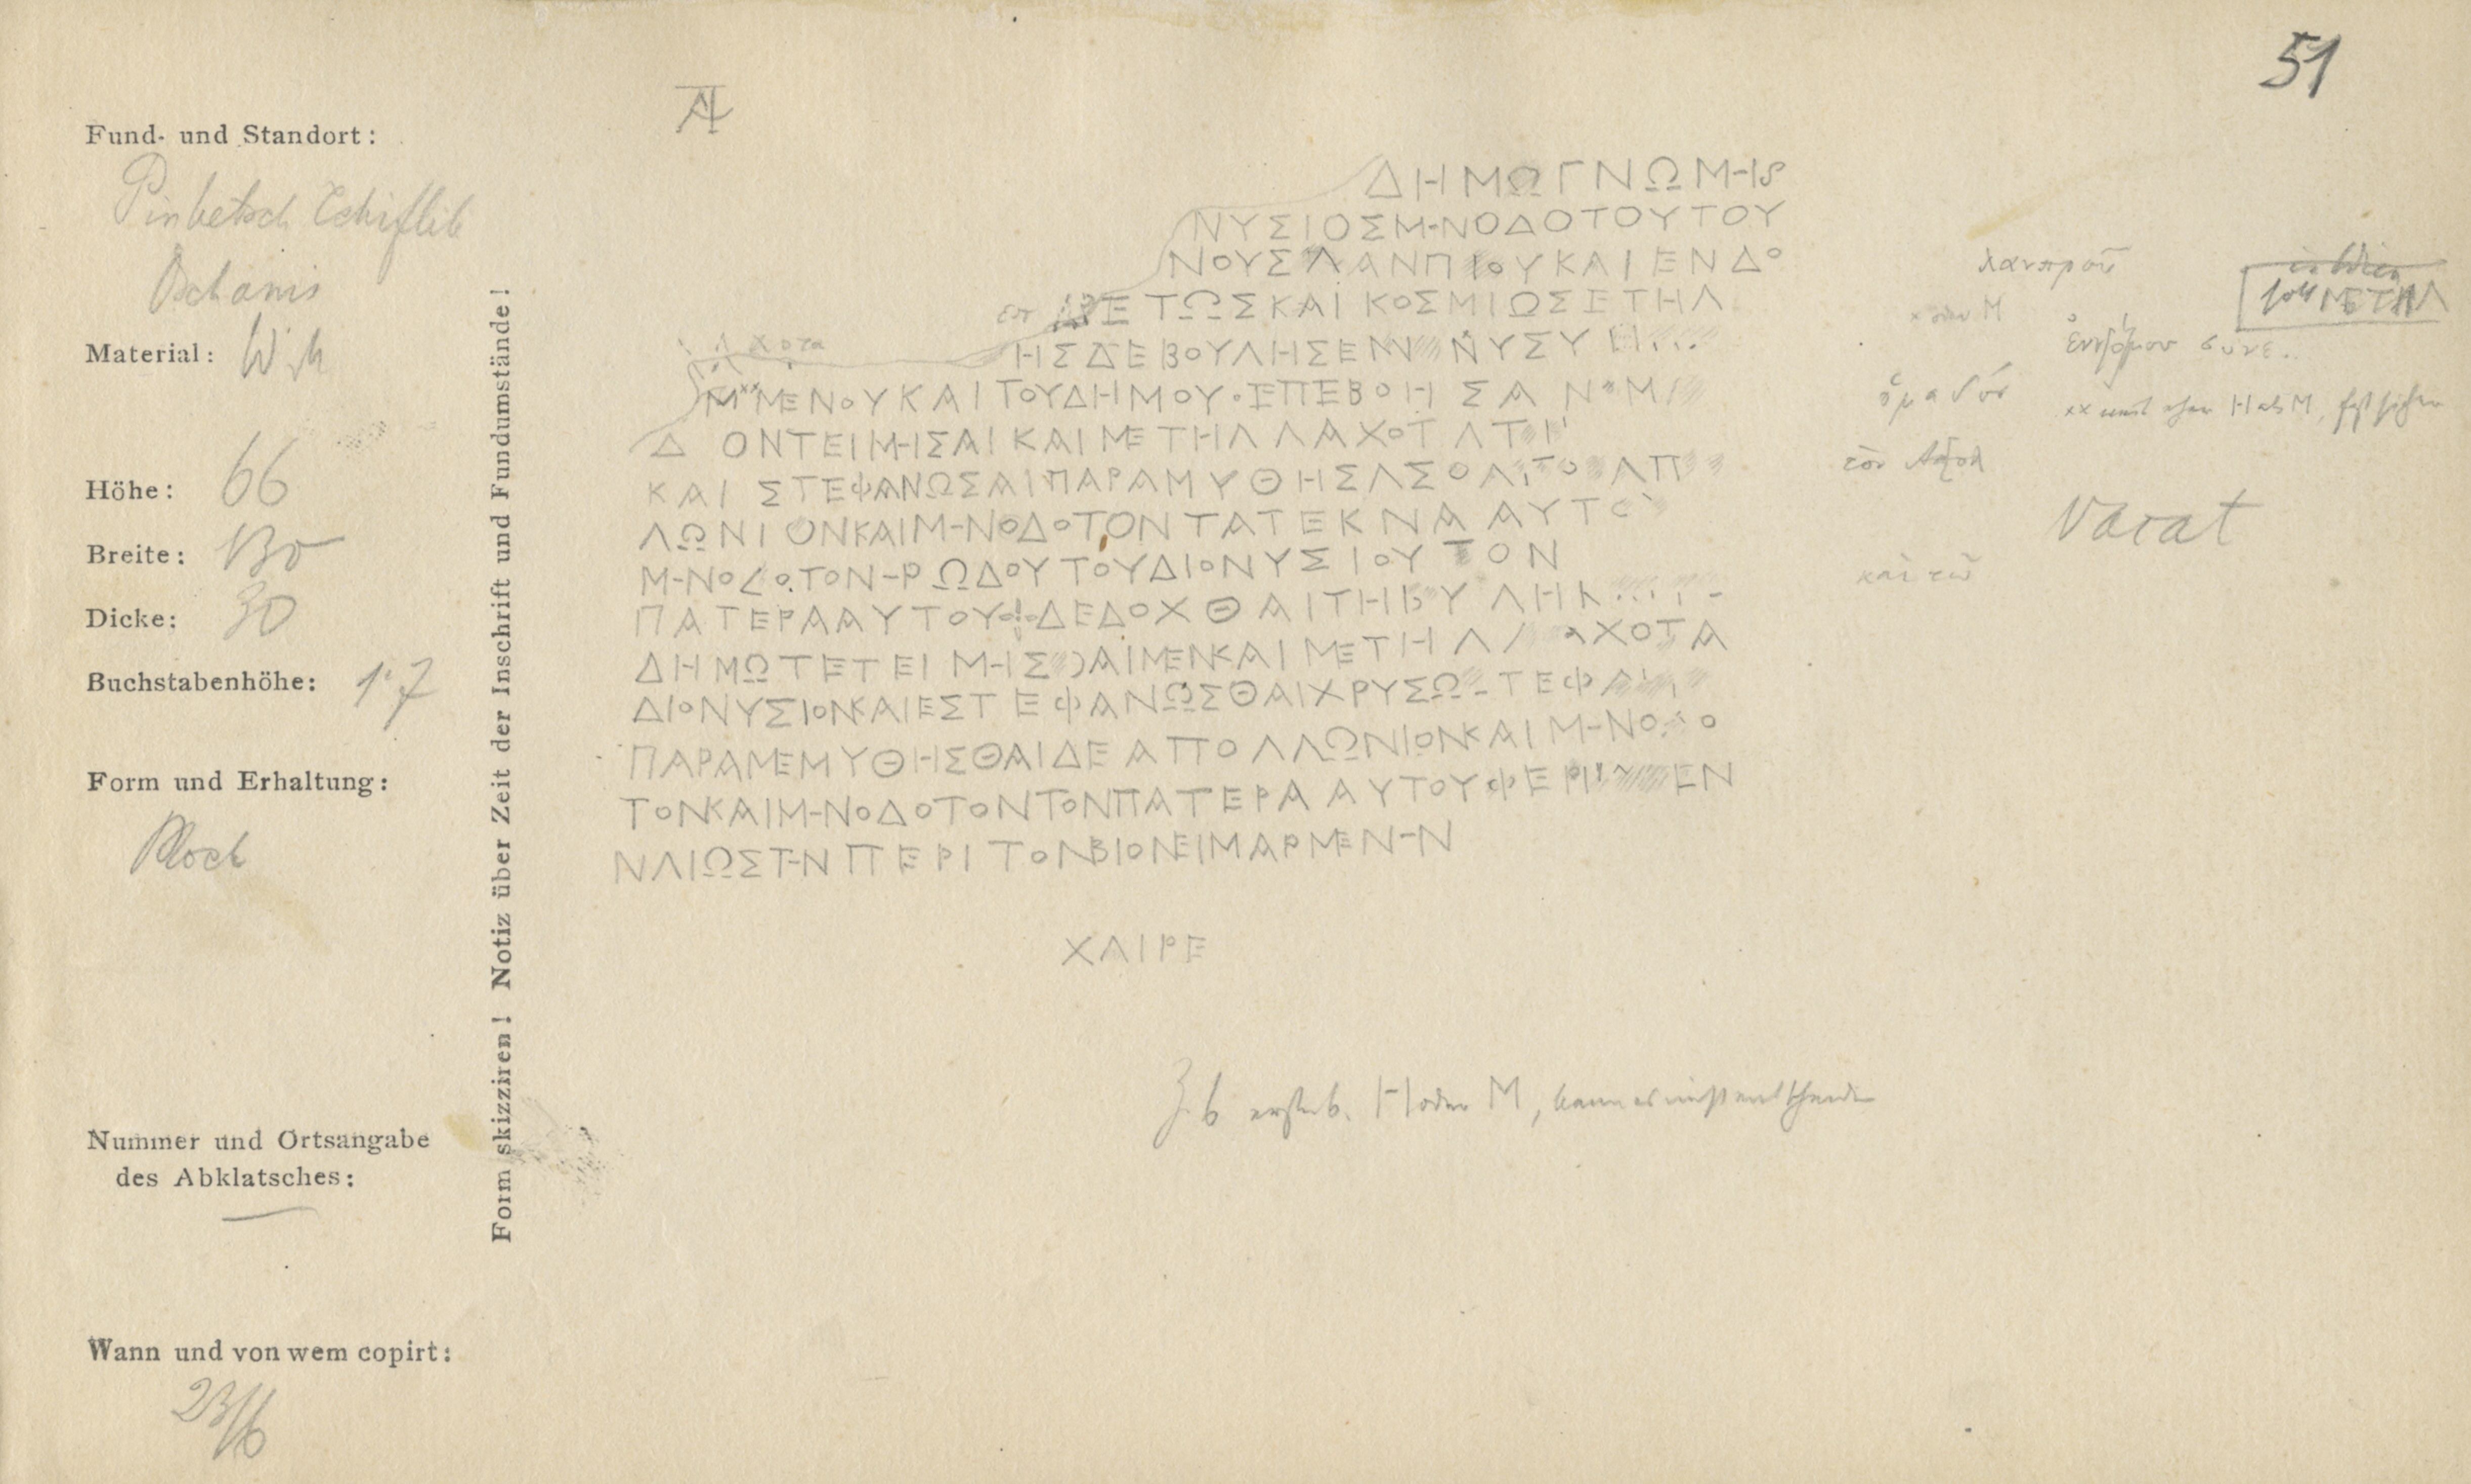 51
Fund- und Standort:
Pinbetsch Tchiflik
Material:
Höhe: 66
Breite: 130
Dicke: 30
Buchstabenhöhe: 1·7
Form und Erhaltung:
Block
Nummer und Ortsangabe
des Abklatsches:
Wann und von wem copirt:
23/6
Form skizziren! Notiz über Zeit der Inschrift und Fundumstände!
ΔΗΜΩΓΝΩΜΗ
ΝΥΣΙΟΣΜΗΝΟΔΟΤΟΥΤΟΥ
ΝΟΥΣΛΑΝΠΙΟΥΚΑΙΕΝΔΟ
ΕΤΩΣΚΑΙ ΚΟΣΜΙΩΣΕΤΗΛ
χοτα
ΗΣΔΕΒΟΥΛΗΣΕΝ ΝΥΣΥ
ΜΕΝΟΥΚΑΙΤΟΥΔΗΜΟΥ·ΕΠΕΒΟΗΣΑΝ
Δ ΟΝΤΕΙΜΗΣΑΙΚΑΙΜΕΤΗΛΛΑΧΟΤ
ΚΑΙ ΣΤΕΦΑΝΩΣΑΙΠΑΡΑΜΥΘΗΣΛΣΘΑ
ΛΩΝΙΟΝΚΑΙΜΗΝΟΔΟΤΟΝΤΑΤΕΚΝΑΑΥΤΟ
ΜΗΝΟΔΟΤΟΝΗΡΩΔΟΥΤΟΥΔΙΟΝΥΣΙΟΥΤΟΝ
ΠΑΤΕΡΑΑΥΤΟΥ ΔΕΔΟΧΘΑΙΤΗΒΥΛΗΚ
ΔΗΜΩΤΕΤΕΙΜΗΣ ΑΙΜΕΝΚΑΙΜΕΤΗΛ ΑΧΟΤΑ
ΔΙΟΝΥΣΙΟΝΚΑΙΕΣΤΕΦΑΝΩΣΘΑΙΧΡΥΣΩ ΤΕΦΑ
ΠΑΡΑΜΕΜΥΘΗΣΘΑΙΔΕΑΠΟΛΛΩΝΙΟΝΚΑΙΜΗΝΟ Ο
ΤΟΝΚΑΙΜΗΝΟΔΟΤΟΝΤΟΝΠΑΤΕΡΑΑΥΤΟΥΦΕΡΙ ΕΝ
ΝΛΙΩΣΤΗΝΠΕΡΙΤΟΝΒΙΟΝΕΙΜΑΡΜΕΝΗΝ
ΧΑΙΡΕ
λανπροῦ
ΜΕΤΗΛ
vacat
καὶ τῶ
H oder M, kann es nicht entscheiden